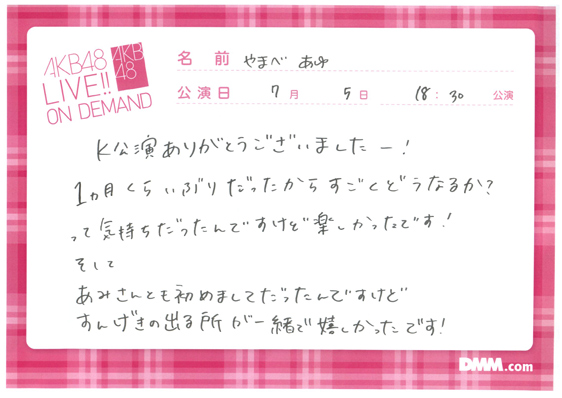 AKB48
LIVE!!
ON DEMAND
AKB
48
名前 やまべ あゆ
公演日 7月 5日 18:30 公演
K公演ありがとうございましたー!
1ヵ月くらいぶりだったからすごくどうなるか?
って気持ちだったんですけど楽しかったです!
そして
あみさんとも初めましてだったんですけど
すんげきの出る所が一緒で嬉しかったです!
DMM.com